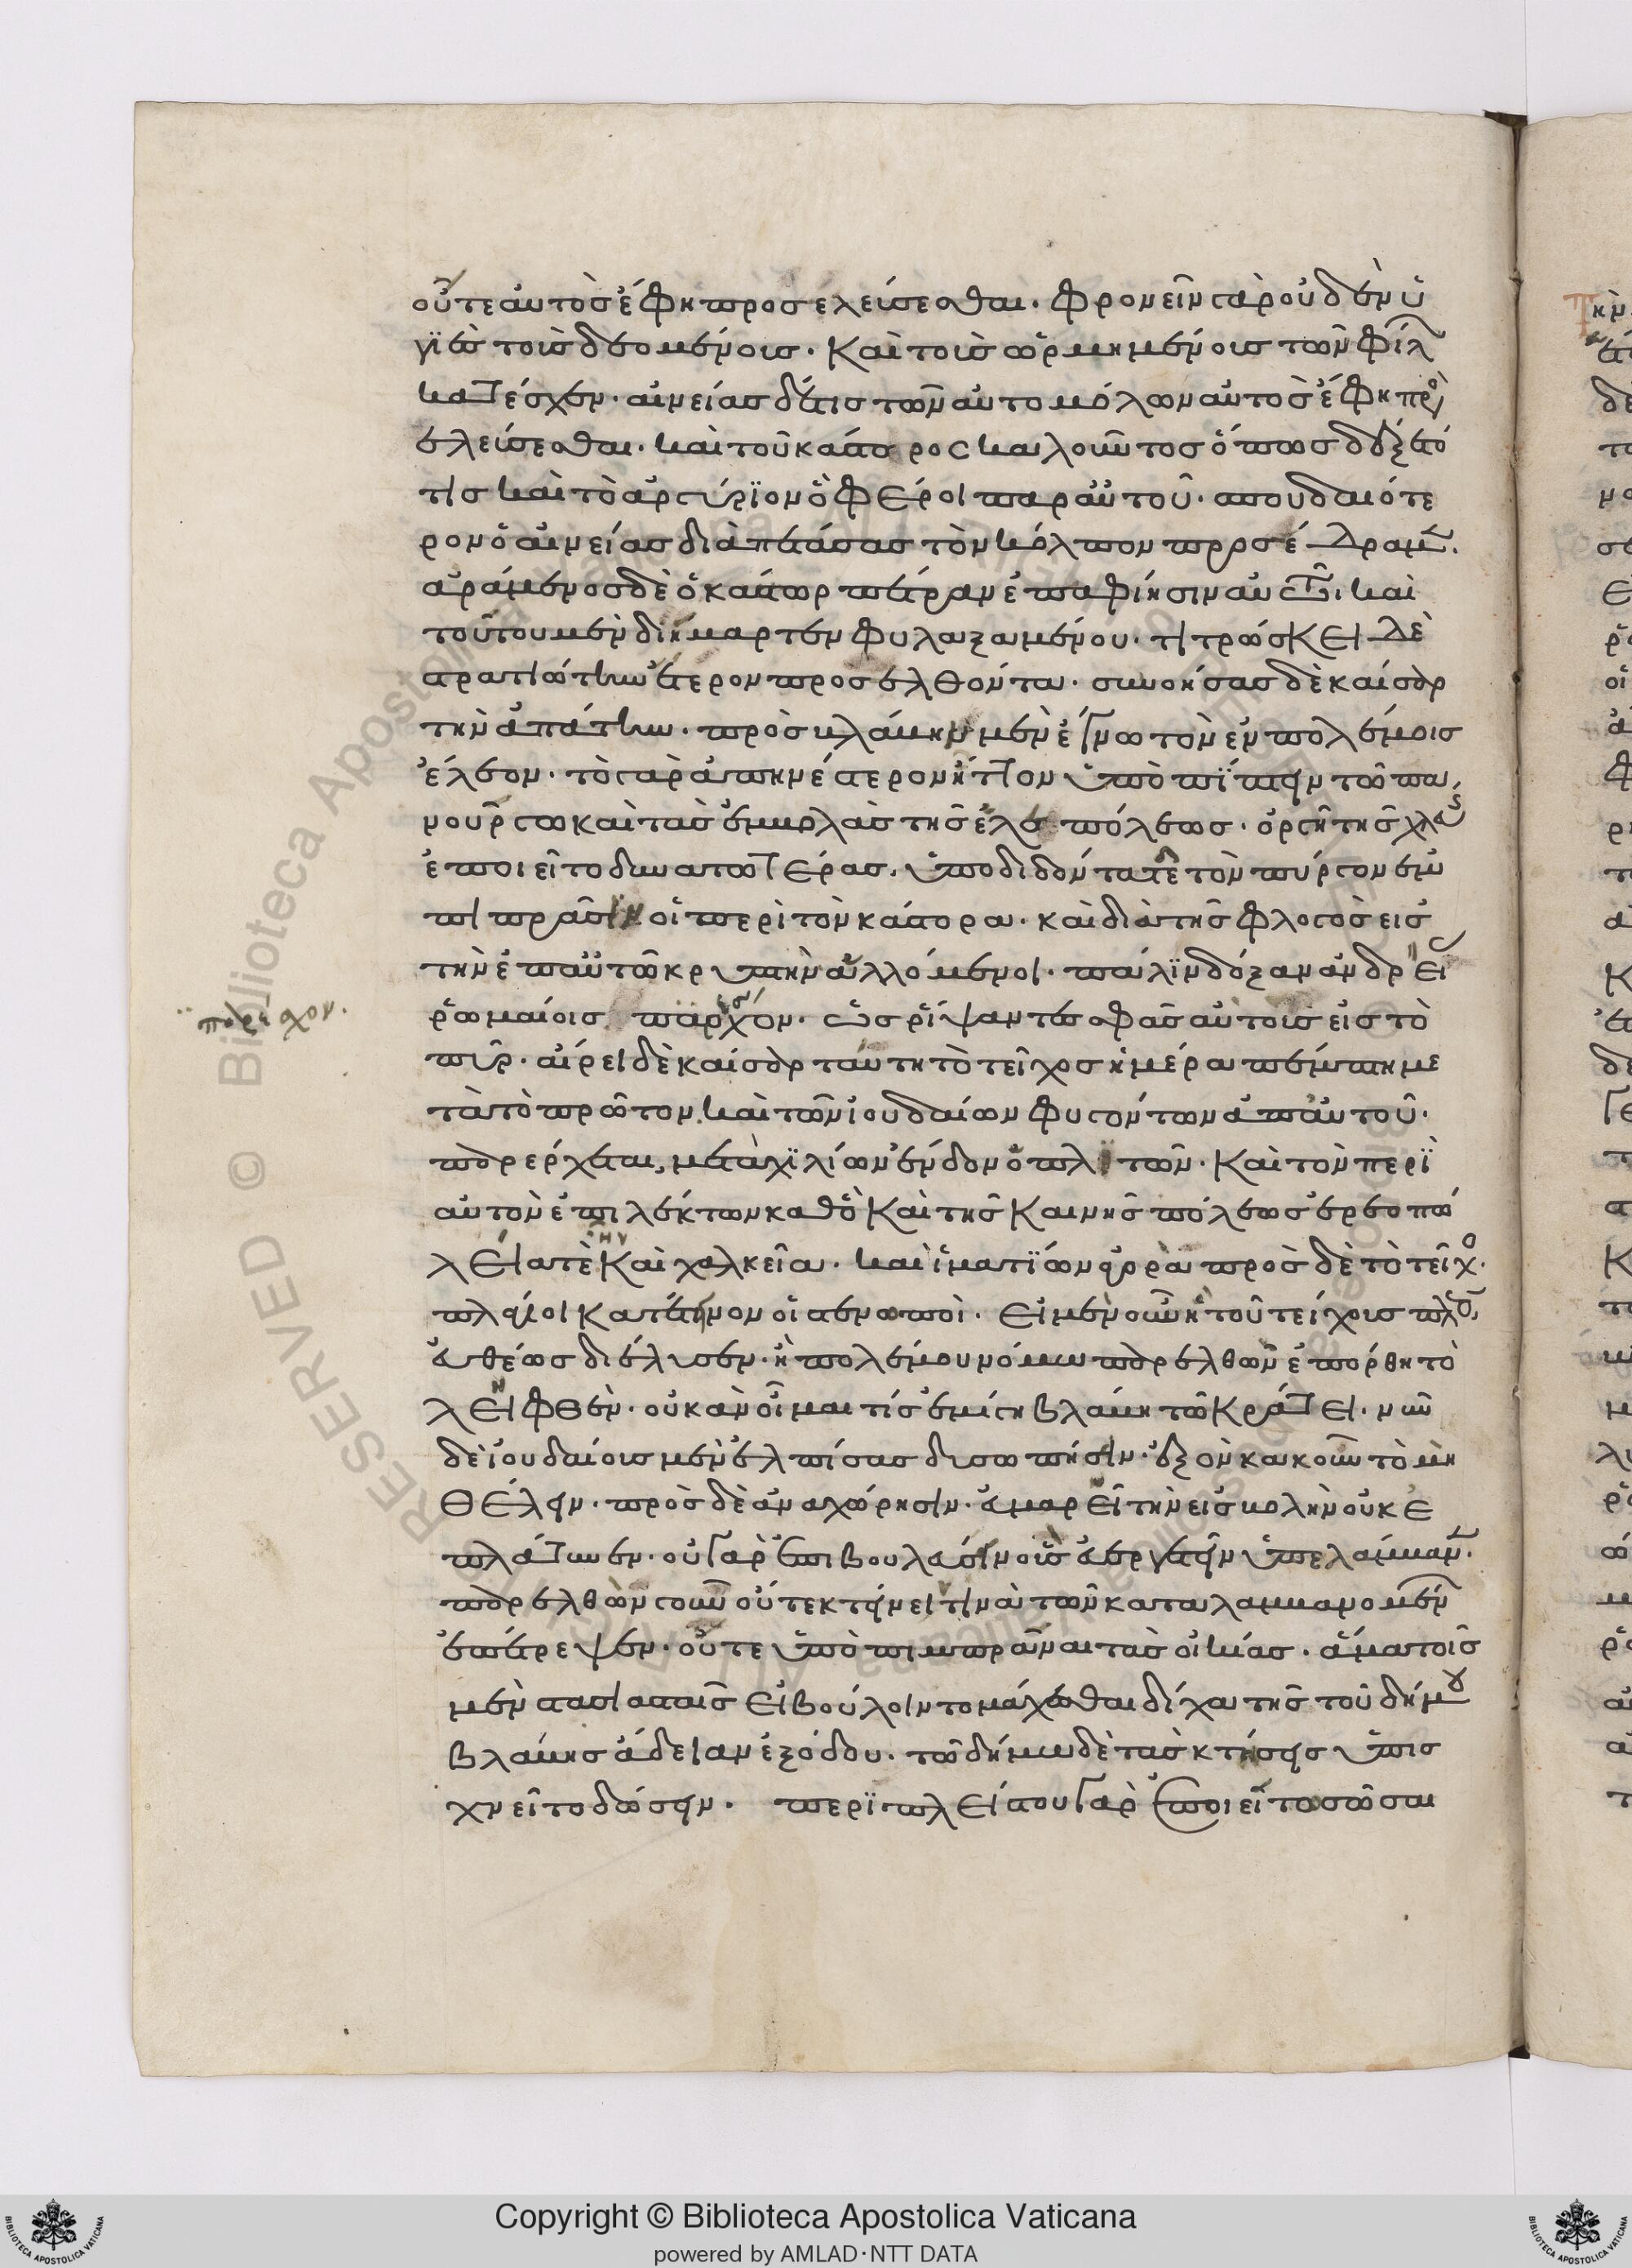 οὔτε αὐτὸς ἔφη προσελεύσεσθαι· φρονεῖν γὰρ οὐδὲν ὑ
γιὲς τοὺς δεομένους· καὶ τοὺς ὡρμημένους τῶν φίλ
κατέσχεν· αἰνείας δέ τις τῶν αὐτομόλων αὐτὸς ἔφη προσ
ελεύσεσθαι· καὶ τοῦ καστορος καλοῦντος ὅπως δέξαιτό
τις καὶ τὸ ἀργύριον ὃ φέροι παρ αὐτοῦ· σπουδαιότε
ρον ὁ αἰνείας διαπετάσας τὸν κόλπον προσέδραμεν.
ἀράμενος δὲ ὁ κάστωρ πέτραν ἐπαφίησιν αὐτῶι καὶ
τούτου μὲν διήμαρτεν φυλαξαμένου· τιτρώσκει δὲ
στρατιώτην ἕτερον προσελθόντα· συννοήσας δὲ καίσαρ
τὴν ἀπάτην· πρὸς βλάβην μὲν ἔγνω τὸν ἐν πολέμοις
ἔλεον· τὸ γὰρ ἀπηνέστερον ἧττον ὑποπίπτειν τῶ πα
νούργω καὶ τὰς ἐμβολὰς τῆς ἑλεπόλεως· ὀργῆ τῆς χλεύης
ἐποιεῖτο δυνατωτέρας. ὑποδιδόντα τε τὸν πύργον ἐμ
πιπρᾶσιν οἱ περὶ τὸν κάστορα· καὶ διὰ τῆς φλογὸς εἰς
τὴν ἐπ αὐτῶ κρυπτὴν ἁλλόμενοι· πάλιν δόξαν ἀνδρείας
ῥωμαίοις παρέσχον. ὡς ῥίψαντες σφᾶς αὐτοὺς εἰς τὸ
παρεῖχον.
πῦρ· αἱρεῖ δὲ καίσαρ ταύτη τὸ τεῖχος ἡμέρα πέμπτη με
τὰ τὸ πρῶτον. καὶ τῶν ἰουδαίων φυγόντων ἀπ αὐτοῦ·
παρέρχεται, μετὰ χιλίων ἔνδον ὁπλιτῶν· καὶ τὸν περὶ
αὐτὸν ἐπιλέκτων καθὸ καὶ τῆς καινῆς πόλεως ἐριοπώ
λειά τε καὶ χαλκεῖα· καὶ ἱματίων ἀγορὰ πρὸς δὲ τὸ τεῖχος
πλάγιοι κατέτεινον οἱ στενωποὶ. εἰ μὲν οὖν ἢ τοῦ τείχους πλέον
εὐθέως διέλυσεν· ἢ πολέμου νόμω παρελθὼν ἐπόρθη τὸ
λειφθέν. οὐκ ἂν οἶμαι τίς ἐμίγη βλάβη τῶ κράτει· νῦν
δὲ ἰουδαίους μὲν ἐλπίσας δυσωπήσειν· ἐξὸν κακοῦν τὸ μὴ
θέλειν· πρὸς δὲ ἀναχώρησιν· εὐμαρεῖ τὴν εἰσβολὴν οὐκ ἐ
πλάτυνεν. οὐ γὰρ ἐπιβουλεύσειν οὓς εὐεργετεῖν ὑπελάμβανεν.
παρελθὼν γοῦν οὔτε κτείνειν τινὰ τῶν καταλαμβανομένων
ἐπέτρεψεν. οὔτε ὑποπιμπράναι τὰς οἰκίας. ἅμα τοῖς
μὲν στασιασταῖς εἰ βούλοιντο μάχεσθαι δίχα τῆς τοῦ δήμου
βλάβης ἄδειαν ἐξόδου. τῶ δήμω δὲ τὰς κτήσεις ὑπισ
χνεῖτο δώσειν. περὶ πλείστου γὰρ ἐποιεῖτο σῶσαι